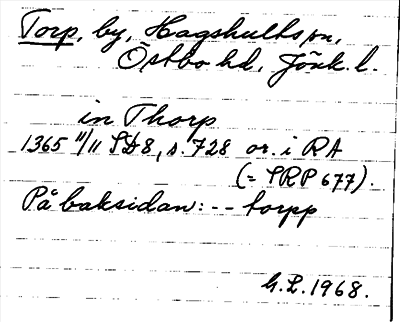 Torp, by, Hagshults sn,
Östbo hd, Jönk. l.
in Thorp
1365 11/11 SD 8, s. 728 or. i RA
(= SRP 677).
På baksidan: -- torpp
G.L. 1968.